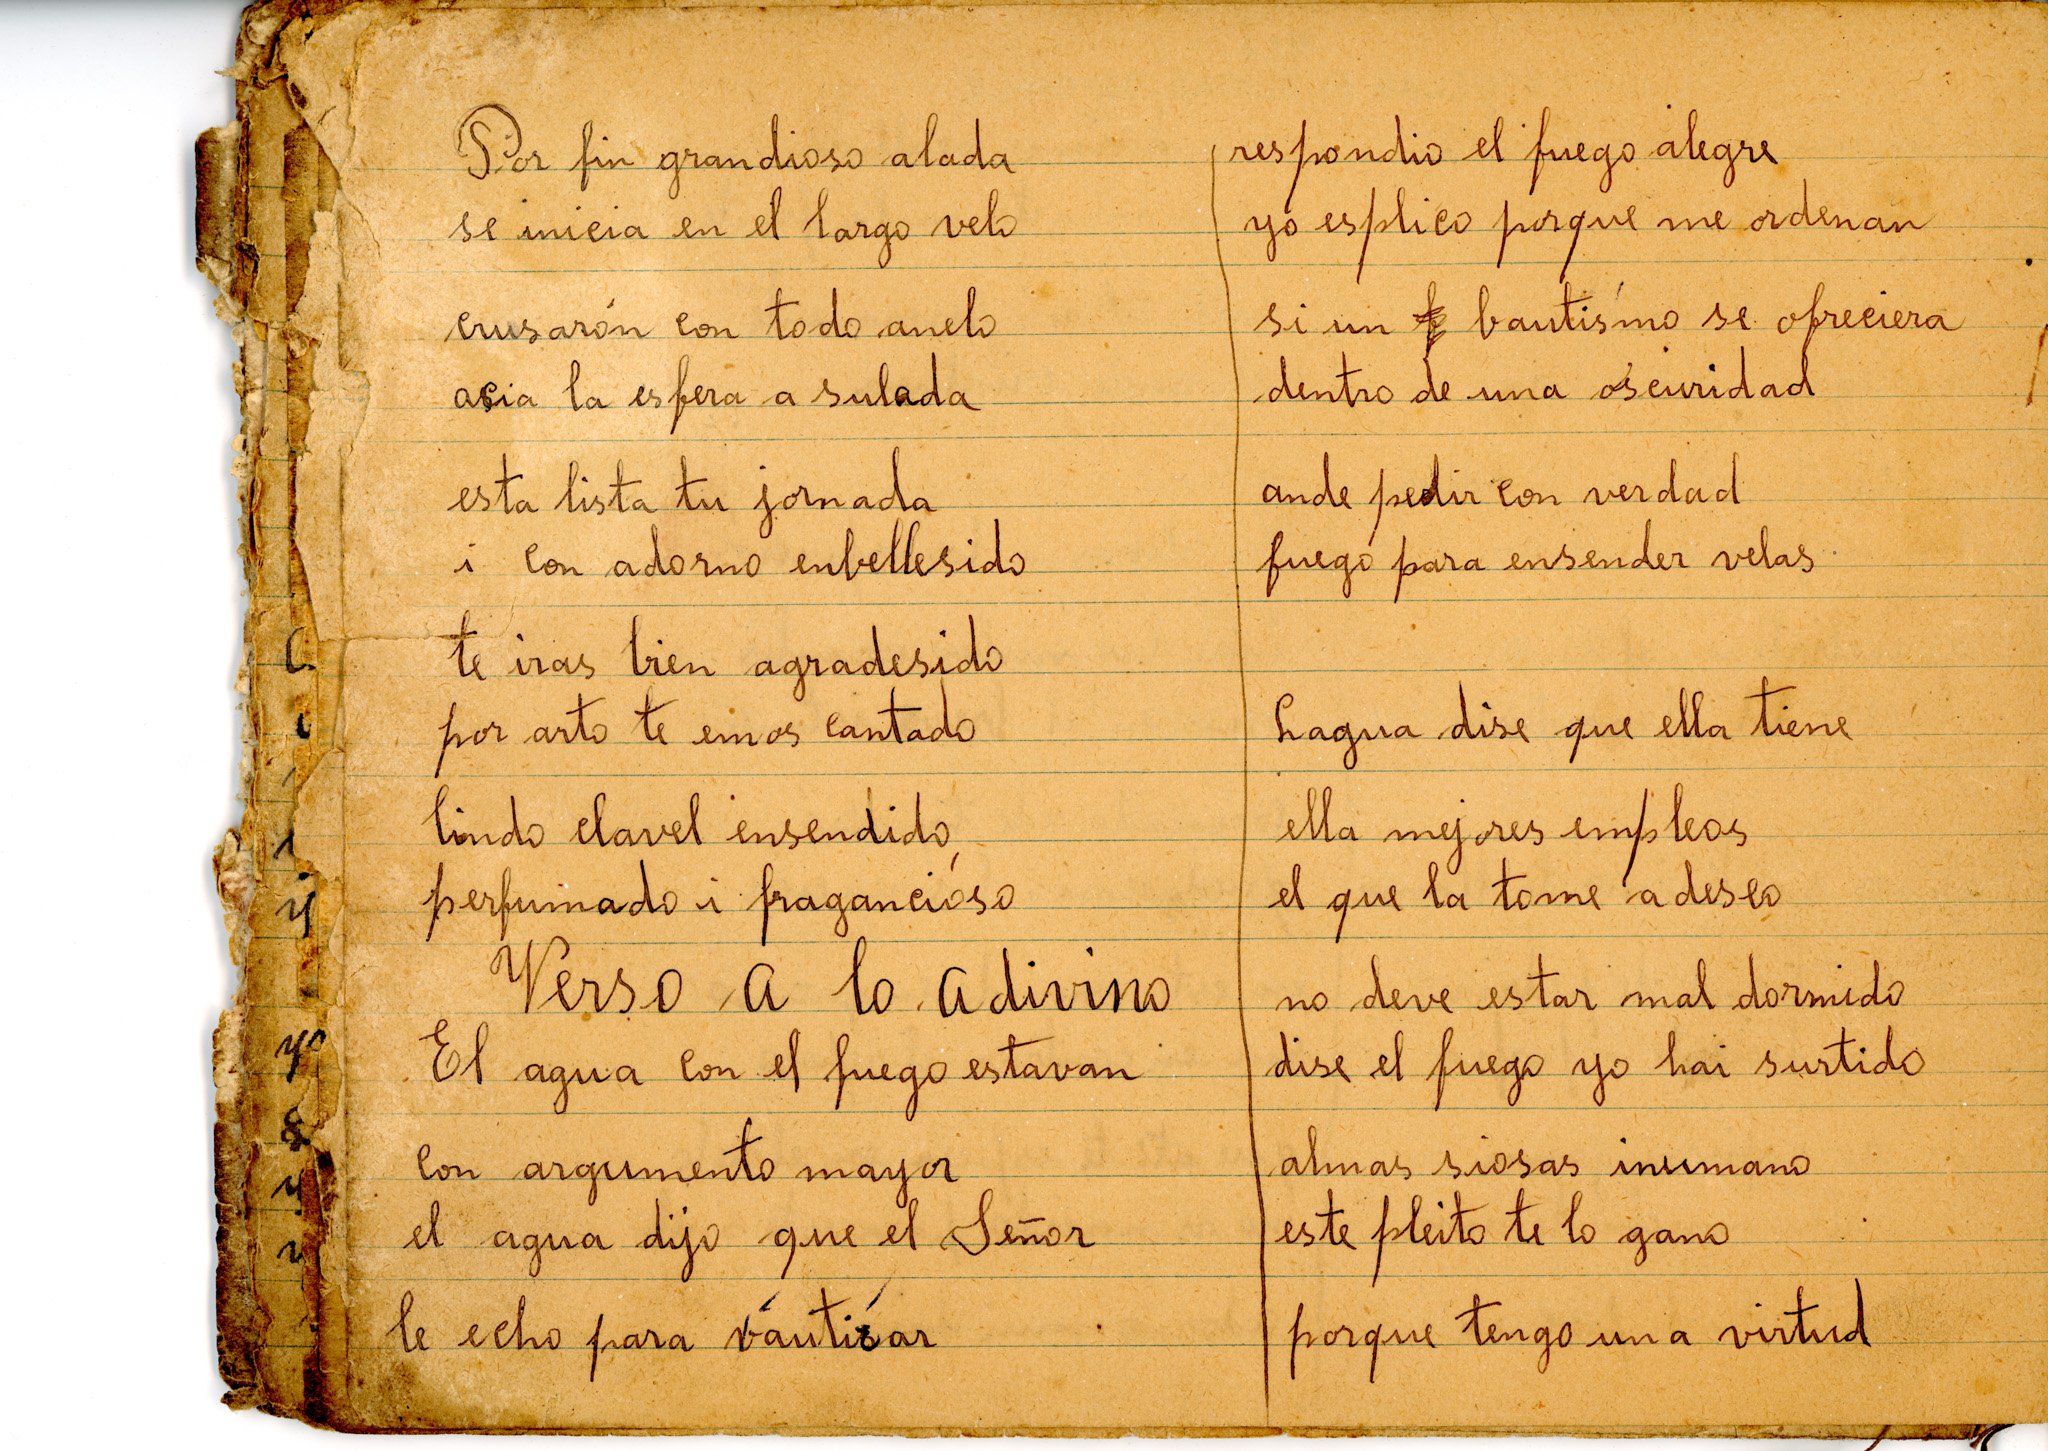 Por fin grandioso alada
se inicia en el largo velo
crusarón con todo anelo
acia la esfera a sulada
esta lista tu jornada
i con adorno enbellesido
te iras bien agradesido
por arto te emos cantado
lindo clavel ensendido
perfumado i fragancióso
Verso a lo adivino
El agua con el fuego estavan
con argumento mayor
el agua dijo que el Señor
le echo para váutizar
respondio el fuego alegre
yo esplico porque me ordenan
si un bautísmo se ofreciera
dentro de una oscuridad
ande pedir con verdad
fuego para ensender velas
Lagua dise que ella tiene
ella mejores empleos
el que la tome a deseo
no deve estar mal dormido
dise el fuego yo hai surtido
almas siosas inumano
este pleito te lo gano
porque tengo una virtud